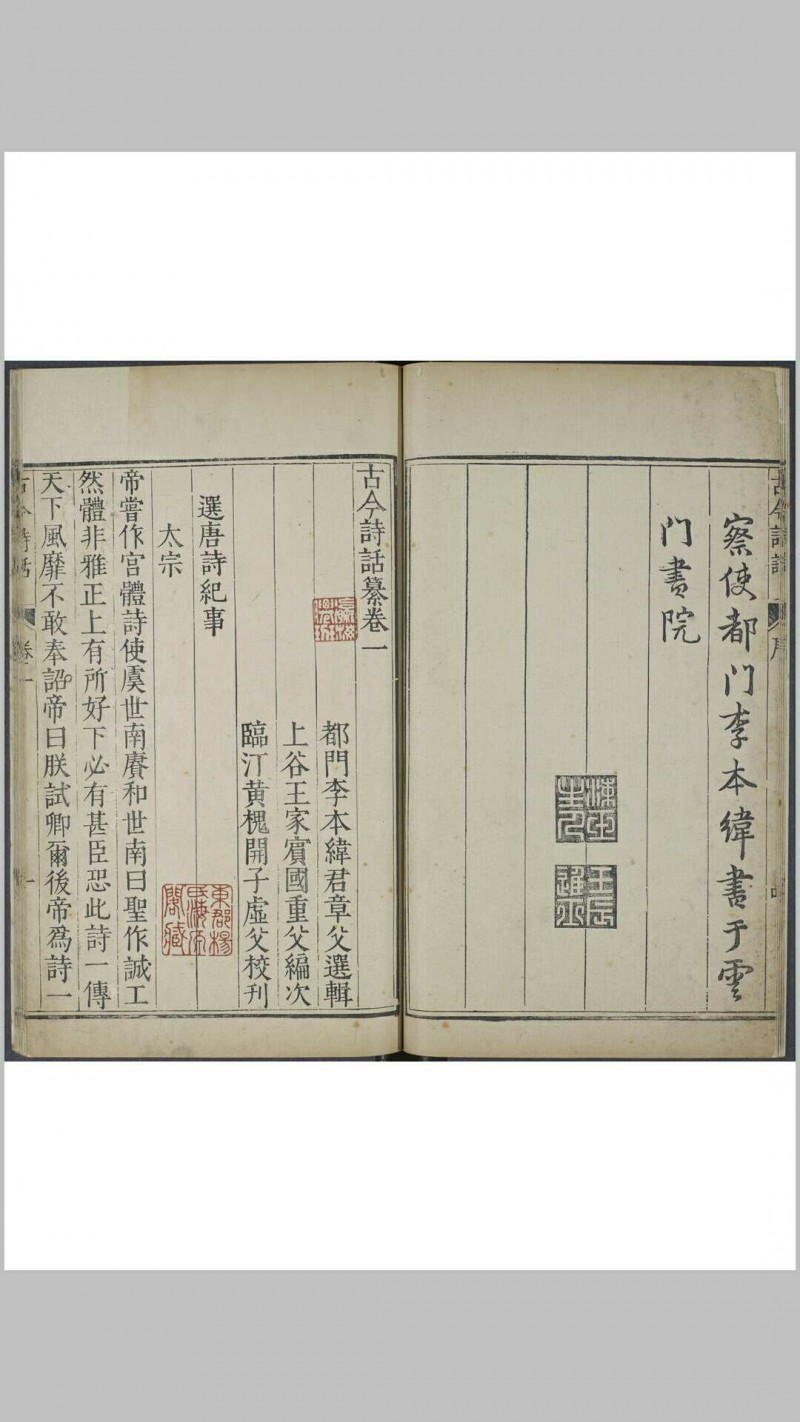 察使都门李本緯書于雲
门書院
古今詩話纂卷一
都門李本緯君章父選輯
上谷王家賓國重父編次
臨汀黄槐開子虛父校刊
選唐詩紀事
太宗
帝嘗作宫體詩使虞世南賡和世南曰聖作誠工
然體非雅正上有所好下必有甚臣恐此詩一傳
天下風靡不敢奉詔帝曰朕試卿爾後帝爲詩一
古今詩話
卷一
一
東郡楊
氏海源
閣藏